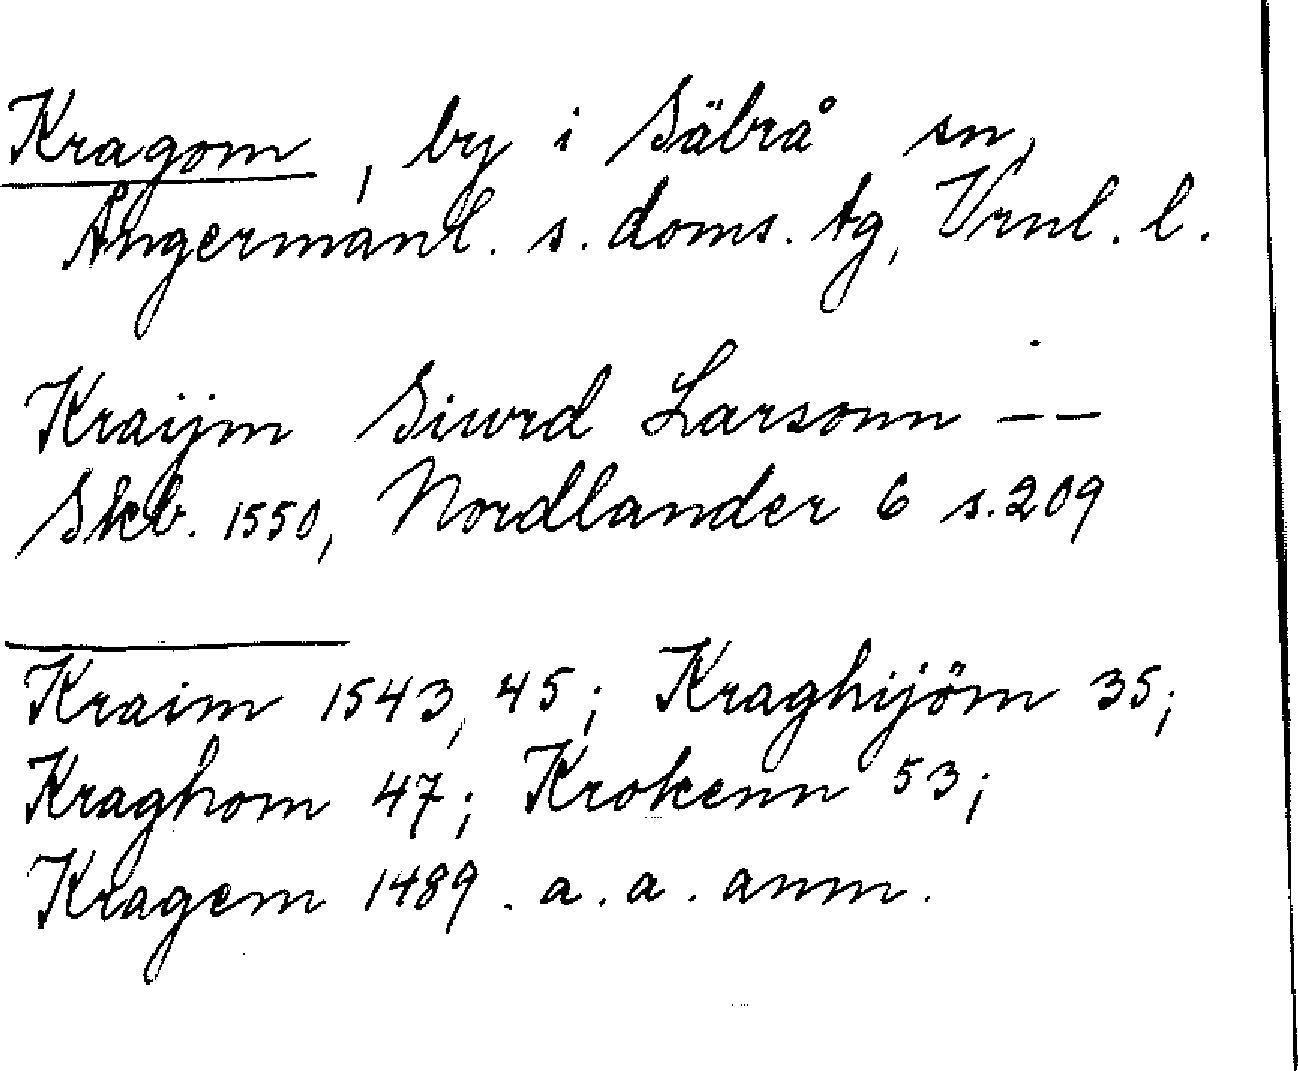 Kragom, by i Säbrå sn,
Ångermanl. s. doms. tg, Vrnl. l.
Kraijm Siwrd Larsonn --
Skb. 1550, Nordlander 6 s. 209
Kraim 1543, 45; Kraghijöm 35;
Kraghom 47; Krokenn 53;
Kragem 1489. a. a. anm.